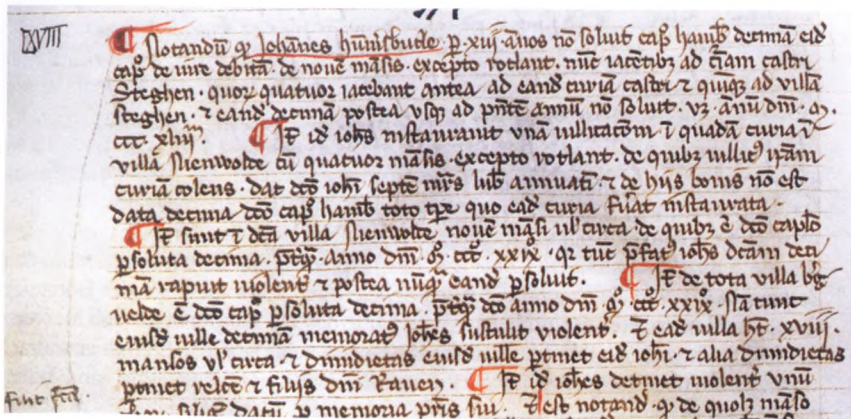 LXVIII
¶ Notandū ꝙ Johānes hūmsbutle p xiiii ānos nō soluit cap̄lo hamb̄ decimā eid
cap̄lo de iure debitā · de nouē māsis · excepto rotlant · nūc iacētibꝫ ad c̄iam castri
Steghen · quoꝝ quatuor iacebant antea ad eand curiam castri ⁊ quīqꝫ ad villā
steghen · ⁊ eand decimā postea vsqꝫ ad p̄ntē annū nō soluit · vꝫ · ānū dm̄ · m̊ ·
ccc xliiii · ¶ Itē id ioh̄s instaurauit vnā villicatōm · ī quadā curia ī
villa Nienwolde cū quatuor māsis · excepto rotlant · de quibꝫ villicꝰ ip̄am
curiā colens · dat dc̄o ioh̄i septē mr̄s lub̄ annuatī · ⁊ de hiis bonis nō est
data decima dc̄o cap̄lo hamb̄ toto tp̄re quo ead curia fuāt instaurata ·
¶ Itē sunt ī dc̄a villa Nienwolde nouē māsi vl̄ circa · de quibꝫ ē dc̄o cap̄lo
p̱soluta decima · p̄tqꝫ · anno dm̄ · m̊ · ccc̊ · xxix · qꝛ tūc p̄fatꝰ ioh̄s dc̄am deci
mā rapuit violent̄ ⁊ postea nūqꝫ eand p̱soluit · ¶ Itē de tota villa b̄g
velde ē dc̄o cap̄lo p̱soluta decima · p̄tqꝫ dc̄o anno dm̄ · m̊ · ccc̊ · xxix̊ · Nā tunc
eiusd ville decimā memoratꝰ Joh̄es sustulit violent̄ · Et ead villa h̄t · xviii ·
mansos vl̄ circa · ⁊ dimidietas eiusd ville p̱tinet eid ioh̄i · ⁊ alia dimidietas
p̱tinet relc̄e ⁊ filijs dm̄ Rauen · ¶ Itē id ioh̄es detinet violent̄ vnū
datū p̱ memoria p̄ris sui · Et est notand · ꝙ de quolꝫ māso